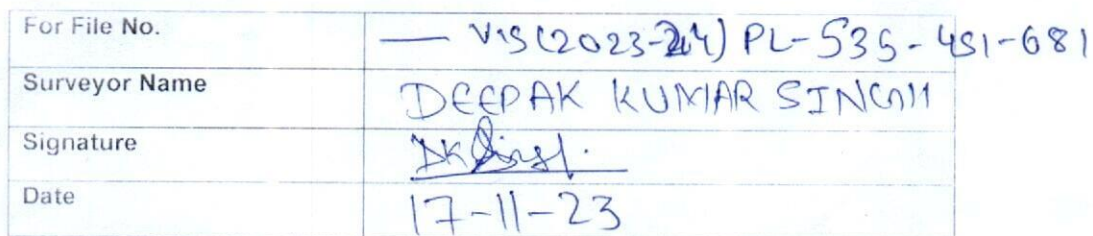 For File No. — VIS(2023-24) PL-535-451-681
Surveyor Name DEEPAK KUMAR SINGH
Signature DKSingh.
Date 17-11-23